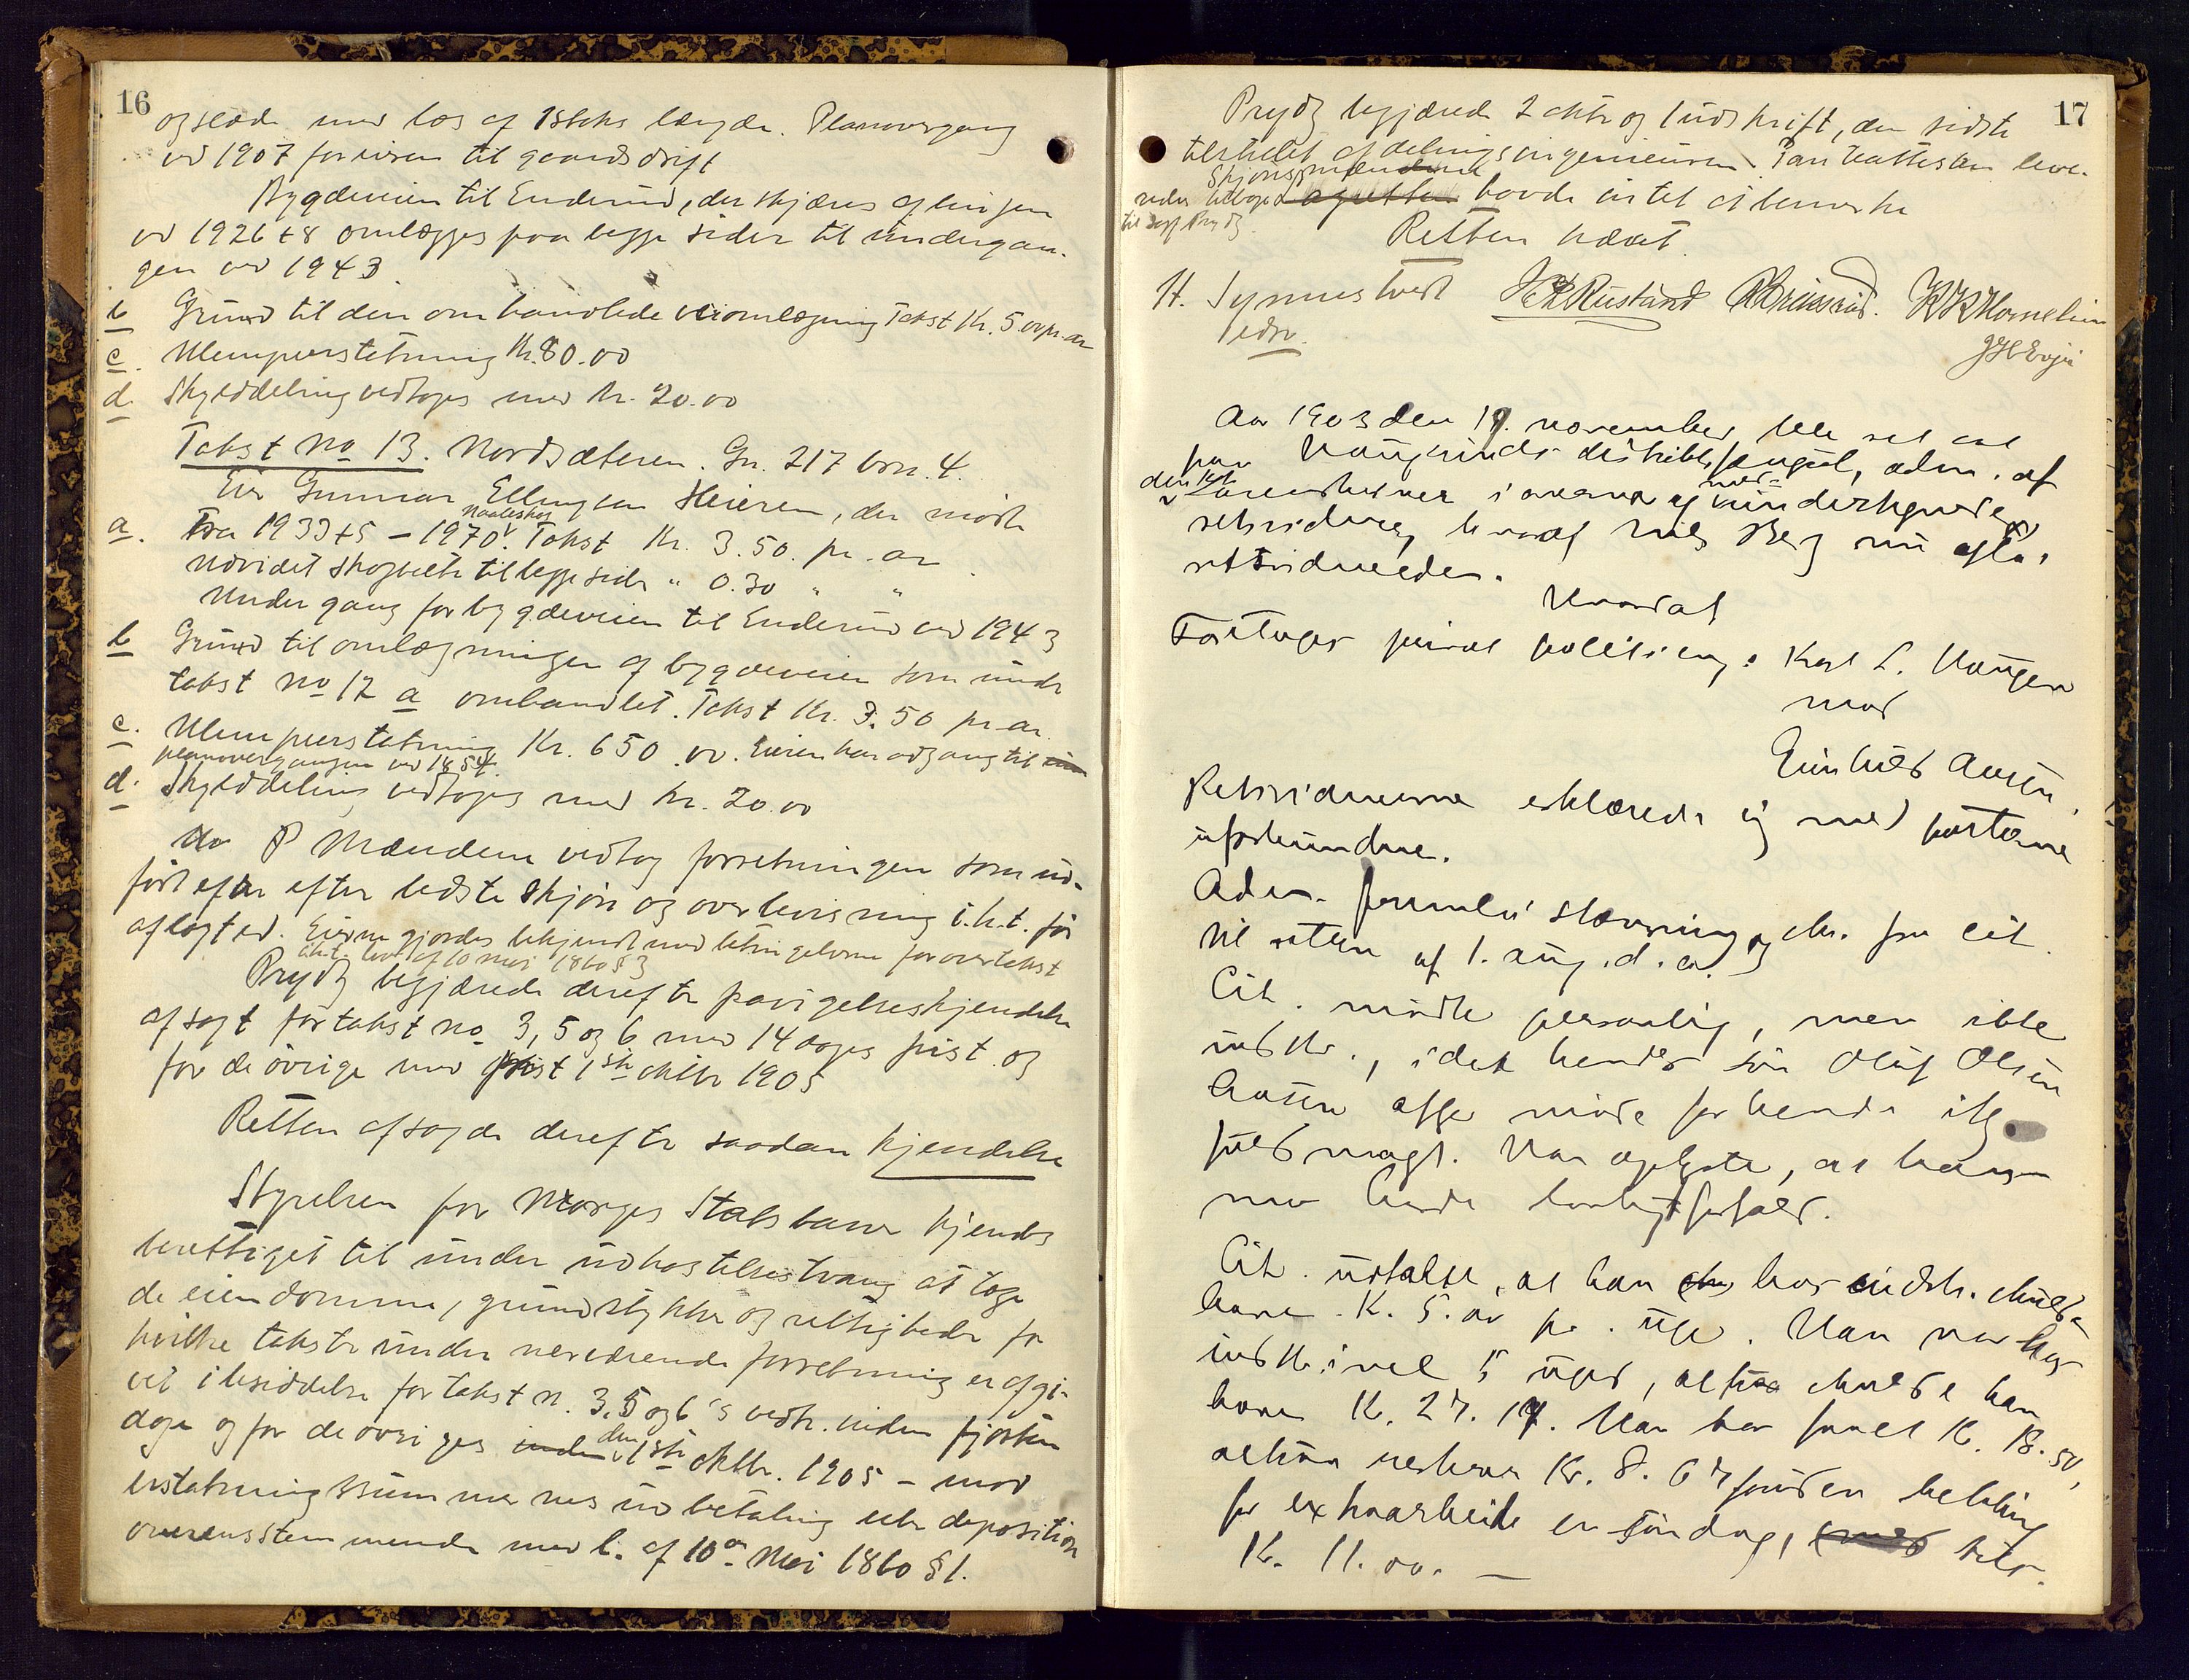 16
og slæde med læs af 18 fods længde. Planovergang
ved 1907 forsvinder til gaardsdrift
Bygdeveien til Enderud, der skjæres af linjen
ved 1926+8 omlægges paa begge sider til undergan-
gen ved 1943.
b Grund til den omhandlede veiomlægning Takst Kr. 5.00 pr. ar
c. Ulempeerstatning Kr. 80.00
d. Skylddeling vedtoges med Kr. 20.00
Takst No 13. Nordsæteren. Gn. 217 brn. 4.
Eier Gunnar Ellingsen Heieren, der mødte
a. Fra 1933+5 – 1970 Naaleskog. Takst Kr. 3.50 pr. ar
Udvidet skogbelte til begge sider " 0.30 " "
Undergang for bygdeveien til Enderud ved 1943
b Grund til omlægningen af bygdeveien som under
takst No 12 a omhandlet. Takst Kr. 3.50 pr ar.
c. Ulempeerstatning Kr. 650.00. Eieren har adgang til
planovergangen ved 1854.
d. Skylddeling vedtoges med Kr. 20.00
Mændene vedtog forretningen som ud-
ført efter bedste skjøn og overbevisning i.h.t. før
aflagt ed. Eierne gjordes bekjendt med betingelserne for overtakst
i.h.t. lov af 10 mai 1860 § 3
Prydz begjærede derefter fravigelseskjendelse
afsagt for takst no 3, 5 og 6 med 14 dages frist og
for de øvrige med frist 1ste oktbr 1905
Retten afsagde derefter saadan kjendelse
Styrelsen for Norges Statsbaner kjendes
berettiget til under udkastelsestvang at tage
de eiendomme, grundstykker og rettigheder for
hvilke takster under nærværende forretning er afgi-
vet i besiddelse for takst n. 3, 5 og 6's vedk. inden fjorten
dage og for de øvriges inden den 1ste oktbr. 1905 – mod
erstatningssummernes udbetaling eller deposition
overensstemmende med l. af 10de Mai 1860 § 1.
17
Prydz begjærede 2 akter og 1 udskrift, den sidste
tilstillet afdelingsingeniøren. Pantattesten leve-
redes tilbage til Prydz. Skjønsmændene havde intet at bemerke
Retten hævet.
H. Symestvedt
edsv.
H. K. Rustand
K K Hornelien
Aar 1903 den 19. november blev ret sat
paa Haugsunds distriktsfængsel, adm. af
den
retsvidner, hvoraf Nils Berg nu aflag
retsvidneeden.
Hvorda
Foretoges privat politisag: Karl L. Haugen
mod
Gunhild Aasen.
Retsvidnerne erklærede sig med parterne
ubeslægtede.
Adm. fremla' stævning og skr. fra cit.
til retten af 1. aug. d.a.
Cit. mødte personlig, men ikke
indst., idet hendes søn Oluf Olsen
Aasen afga møde for hende iflg.
fuldmagt. Han oplyste, at hans
mor havde lovligt forfald.
Cit. udtalte, at han hos indst. skulde
have K. 5.00 pr. uge. Han var hos
indst. i vel 5 uger, altsaa skulde han
have K. 27.17. Han har faaet K. 18.50,
altsaa resterer Kr. 8.67 foruden betaling
for extraarbeide en søndag,
K. 11.00. –